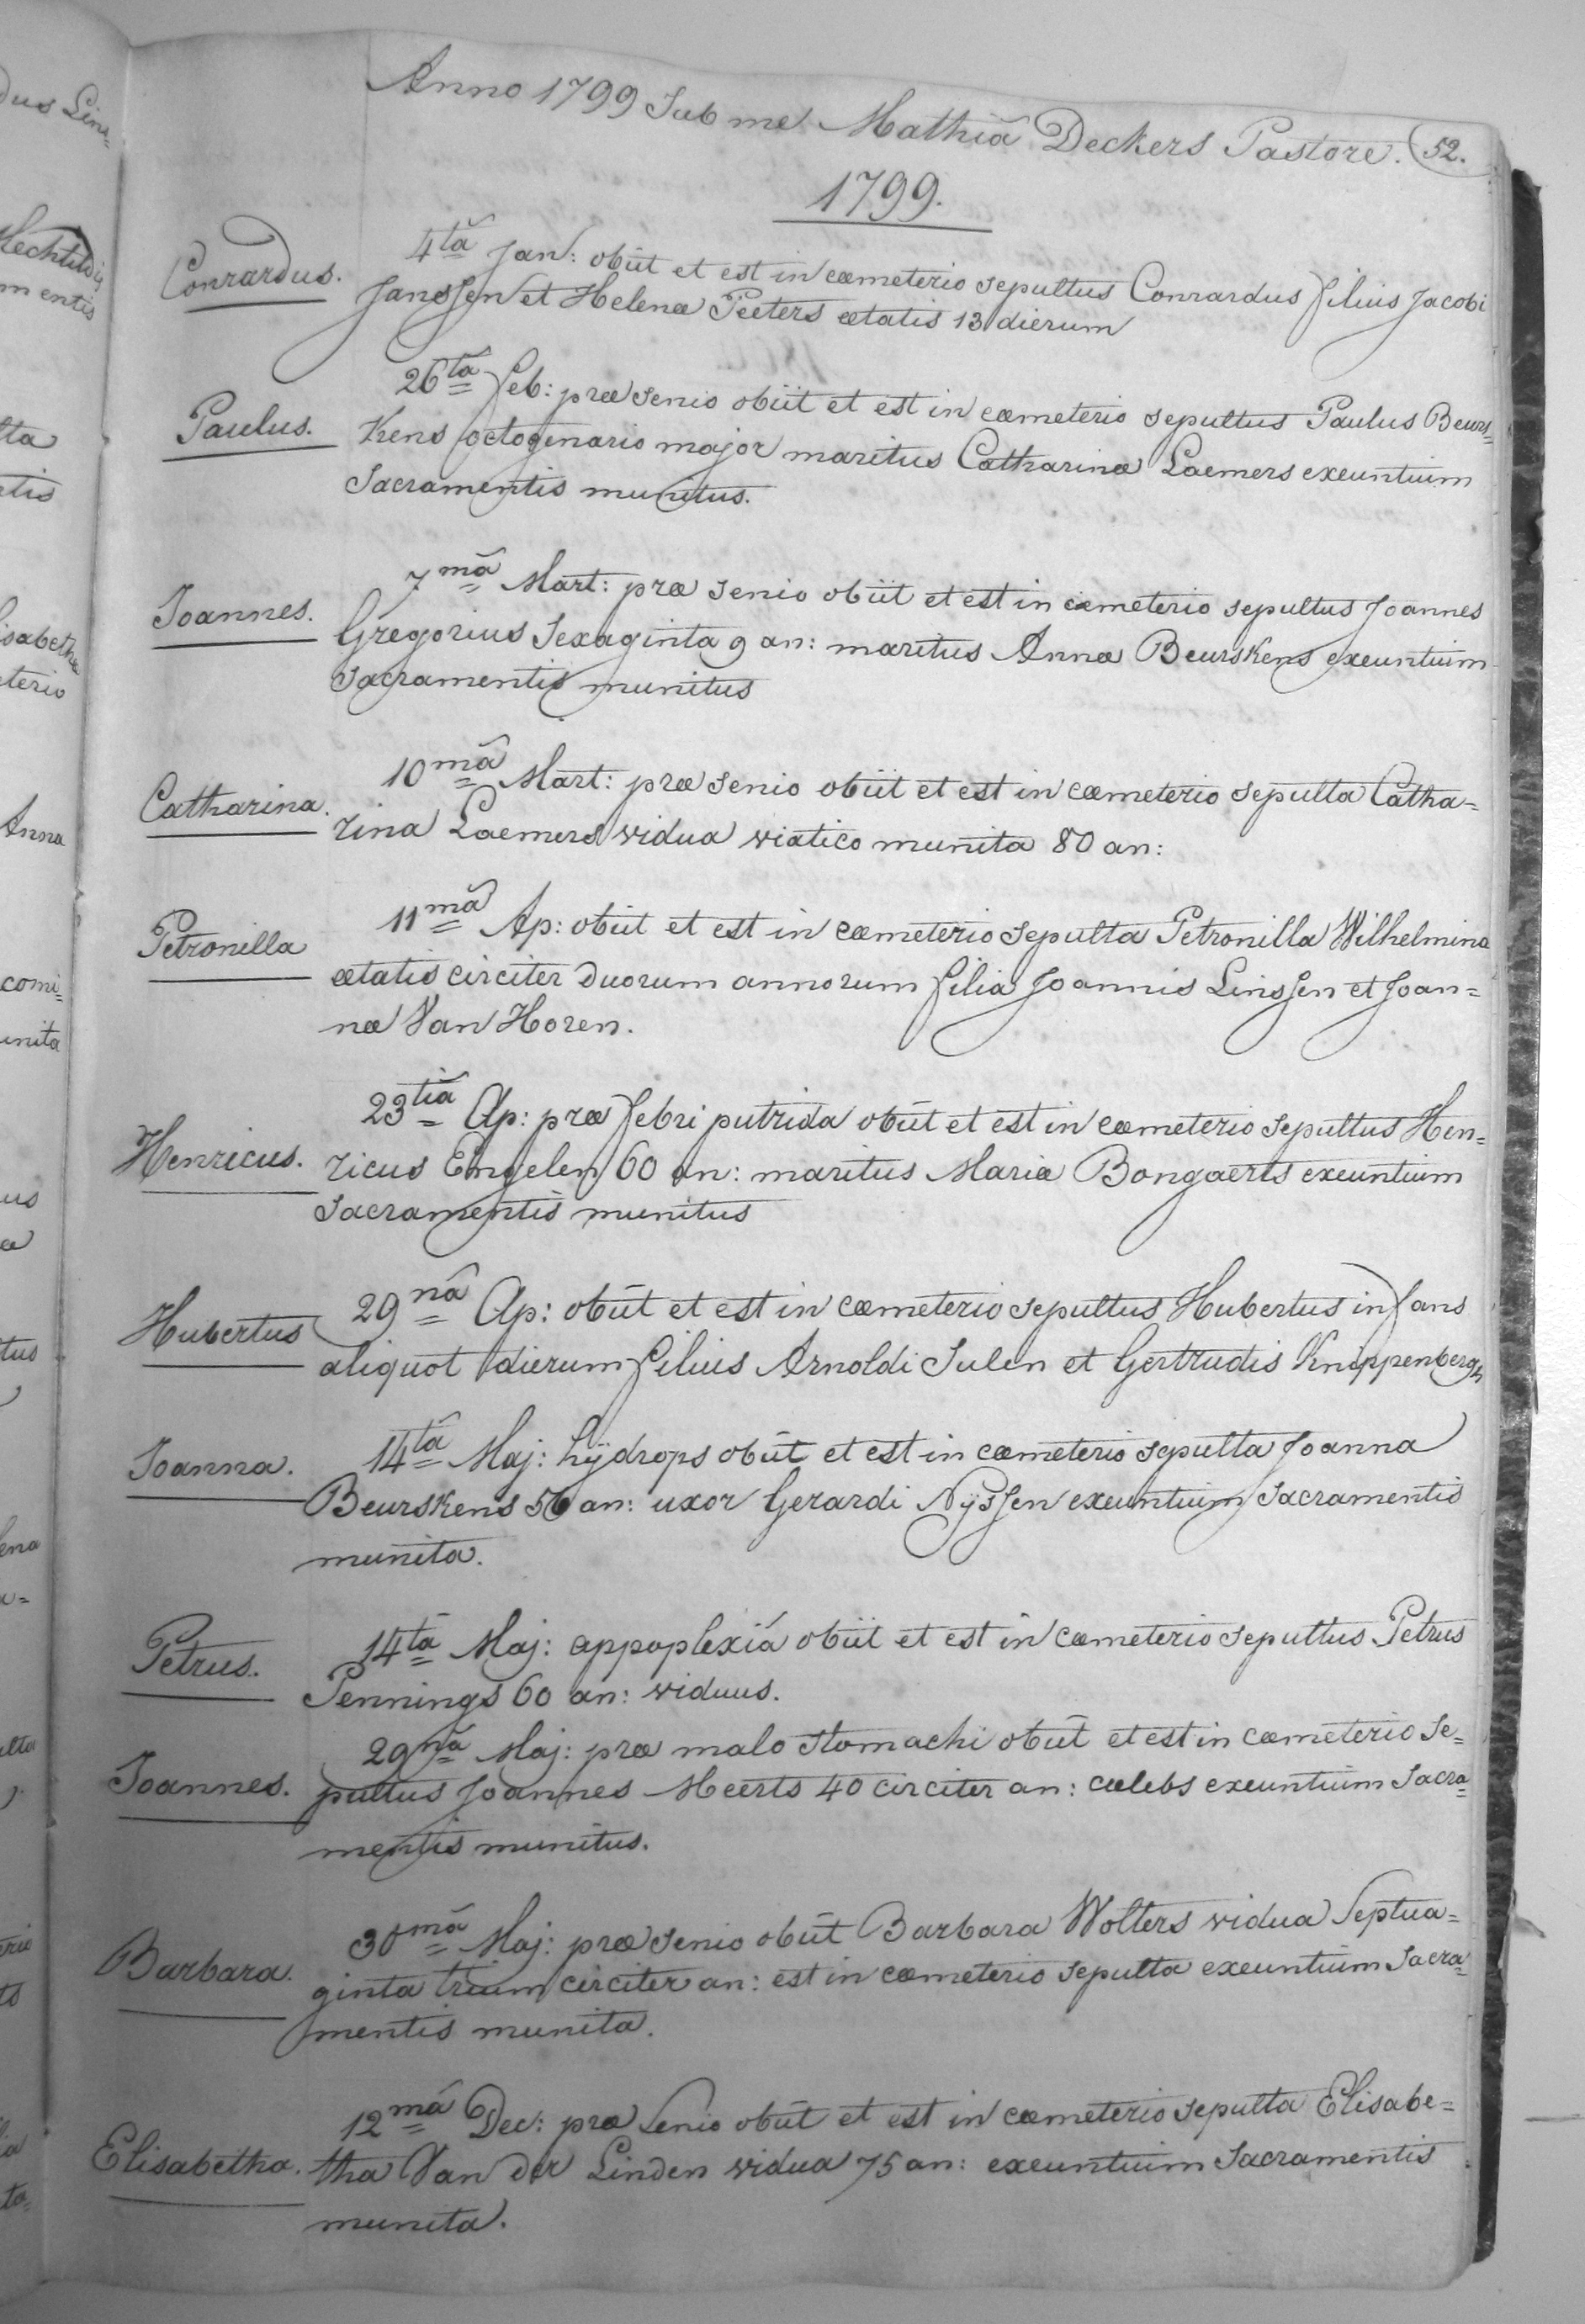 Anno 1799 Sub me Mathiâ Deckers Pastore. 52.
1799.
Conrardus.
4tâ Jan: obiit et est in cœmeterio sepultus Conrardus filius Jacobi
Janssen et Helenæ Peeters ætatis 13 dierum
Paulus.
26tâ feb: præ senio obiit et est in cœmeterio sepultus Paulus Beurs=
Kens octogenario major maritus Catharinæ Laemers exeuntium
Sacramentis munitus.
Joannes.
7mâ Mart: præ senio obiit et est in cœmeterio sepultus Joannes
Gregorius Sexaginta 9 an: maritus Annæ Beurskens exeuntium
Sacramentis munitus
Catharina.
10mâ Mart: præ senio obiit et est in cœmeterio sepulta Catha=
rina Laemers vidua viatico munita 80 an:
Petronilla
11mâ Ap: obiit et est in cœmeterio sepulta Petronilla Wilhelmina
ætatis circiter duorum annorum filia Joannis Linssen et Joan=
næ Van Horen.
Henricus.
23tiâ Ap: præ febri putrida obiit et est in cœmeterio sepultus Hen=
ricus Engelen 60 an: maritus Mariæ Bongaerts exeuntium
Sacramentis munitus
Hubertus
29nâ Ap: obiit et est in cœmeterio sepultus Hubertus infans
aliquot dierum filius Arnoldi Sulen et Gertrudis Knippenbergh
Joanna.
14tâ Maj: hÿdrops obiit et est in cœmeterio sepulta Joanna
Beurskens 56 an: uxor Gerardi Nÿssen exeuntium Sacramentis
munita.
Petrus.
14tâ Maj: appoplexiâ obiit et est in cœmeterio sepultus Petrus
Pennings 60 an: viduus.
Joannes.
29nâ Maj: præ malo stomachi obiit et est in cœmeterio se=
pultus Joannes Meerts 40 circiter an: cælebs exeuntium Sacra=
mentis munitus.
Barbara.
30mâ Maj: præ senio obiit Barbara Wolters vidua Septua=
ginta trium circiter an: est in cœmeterio sepulta exeuntium Sacra=
mentis munita.
Elisabetha.
12mâ Dec: præ Senio obiit et est in cœmeterio sepulta Elisabe=
tha Van der Linden vidua 75 an: exeuntium Sacramentis
munita.